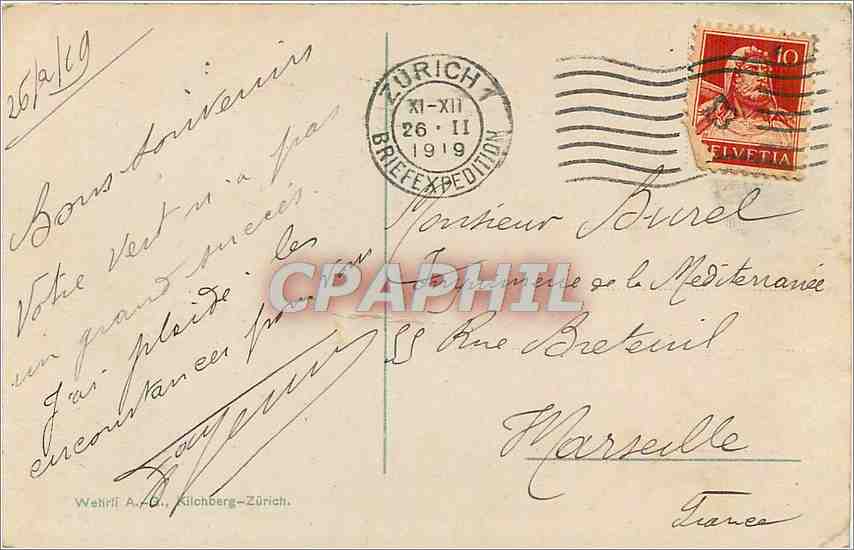 26/2/19
Bons souvenirs
Votre vert n'a pas
un grand succès.
J'ai plaidé les
circonstances pour vous
Wehrli A.-G., Kilchberg-Zürich.
ZÜRICH 1
XI-XII
26·II
1919
BRIEFEXPEDITION
10
HELVETIA
Monsieur Burel
Imprimerie de la Méditerranée
55 Rue Breteuil
Marseille
France
CPAPHIL